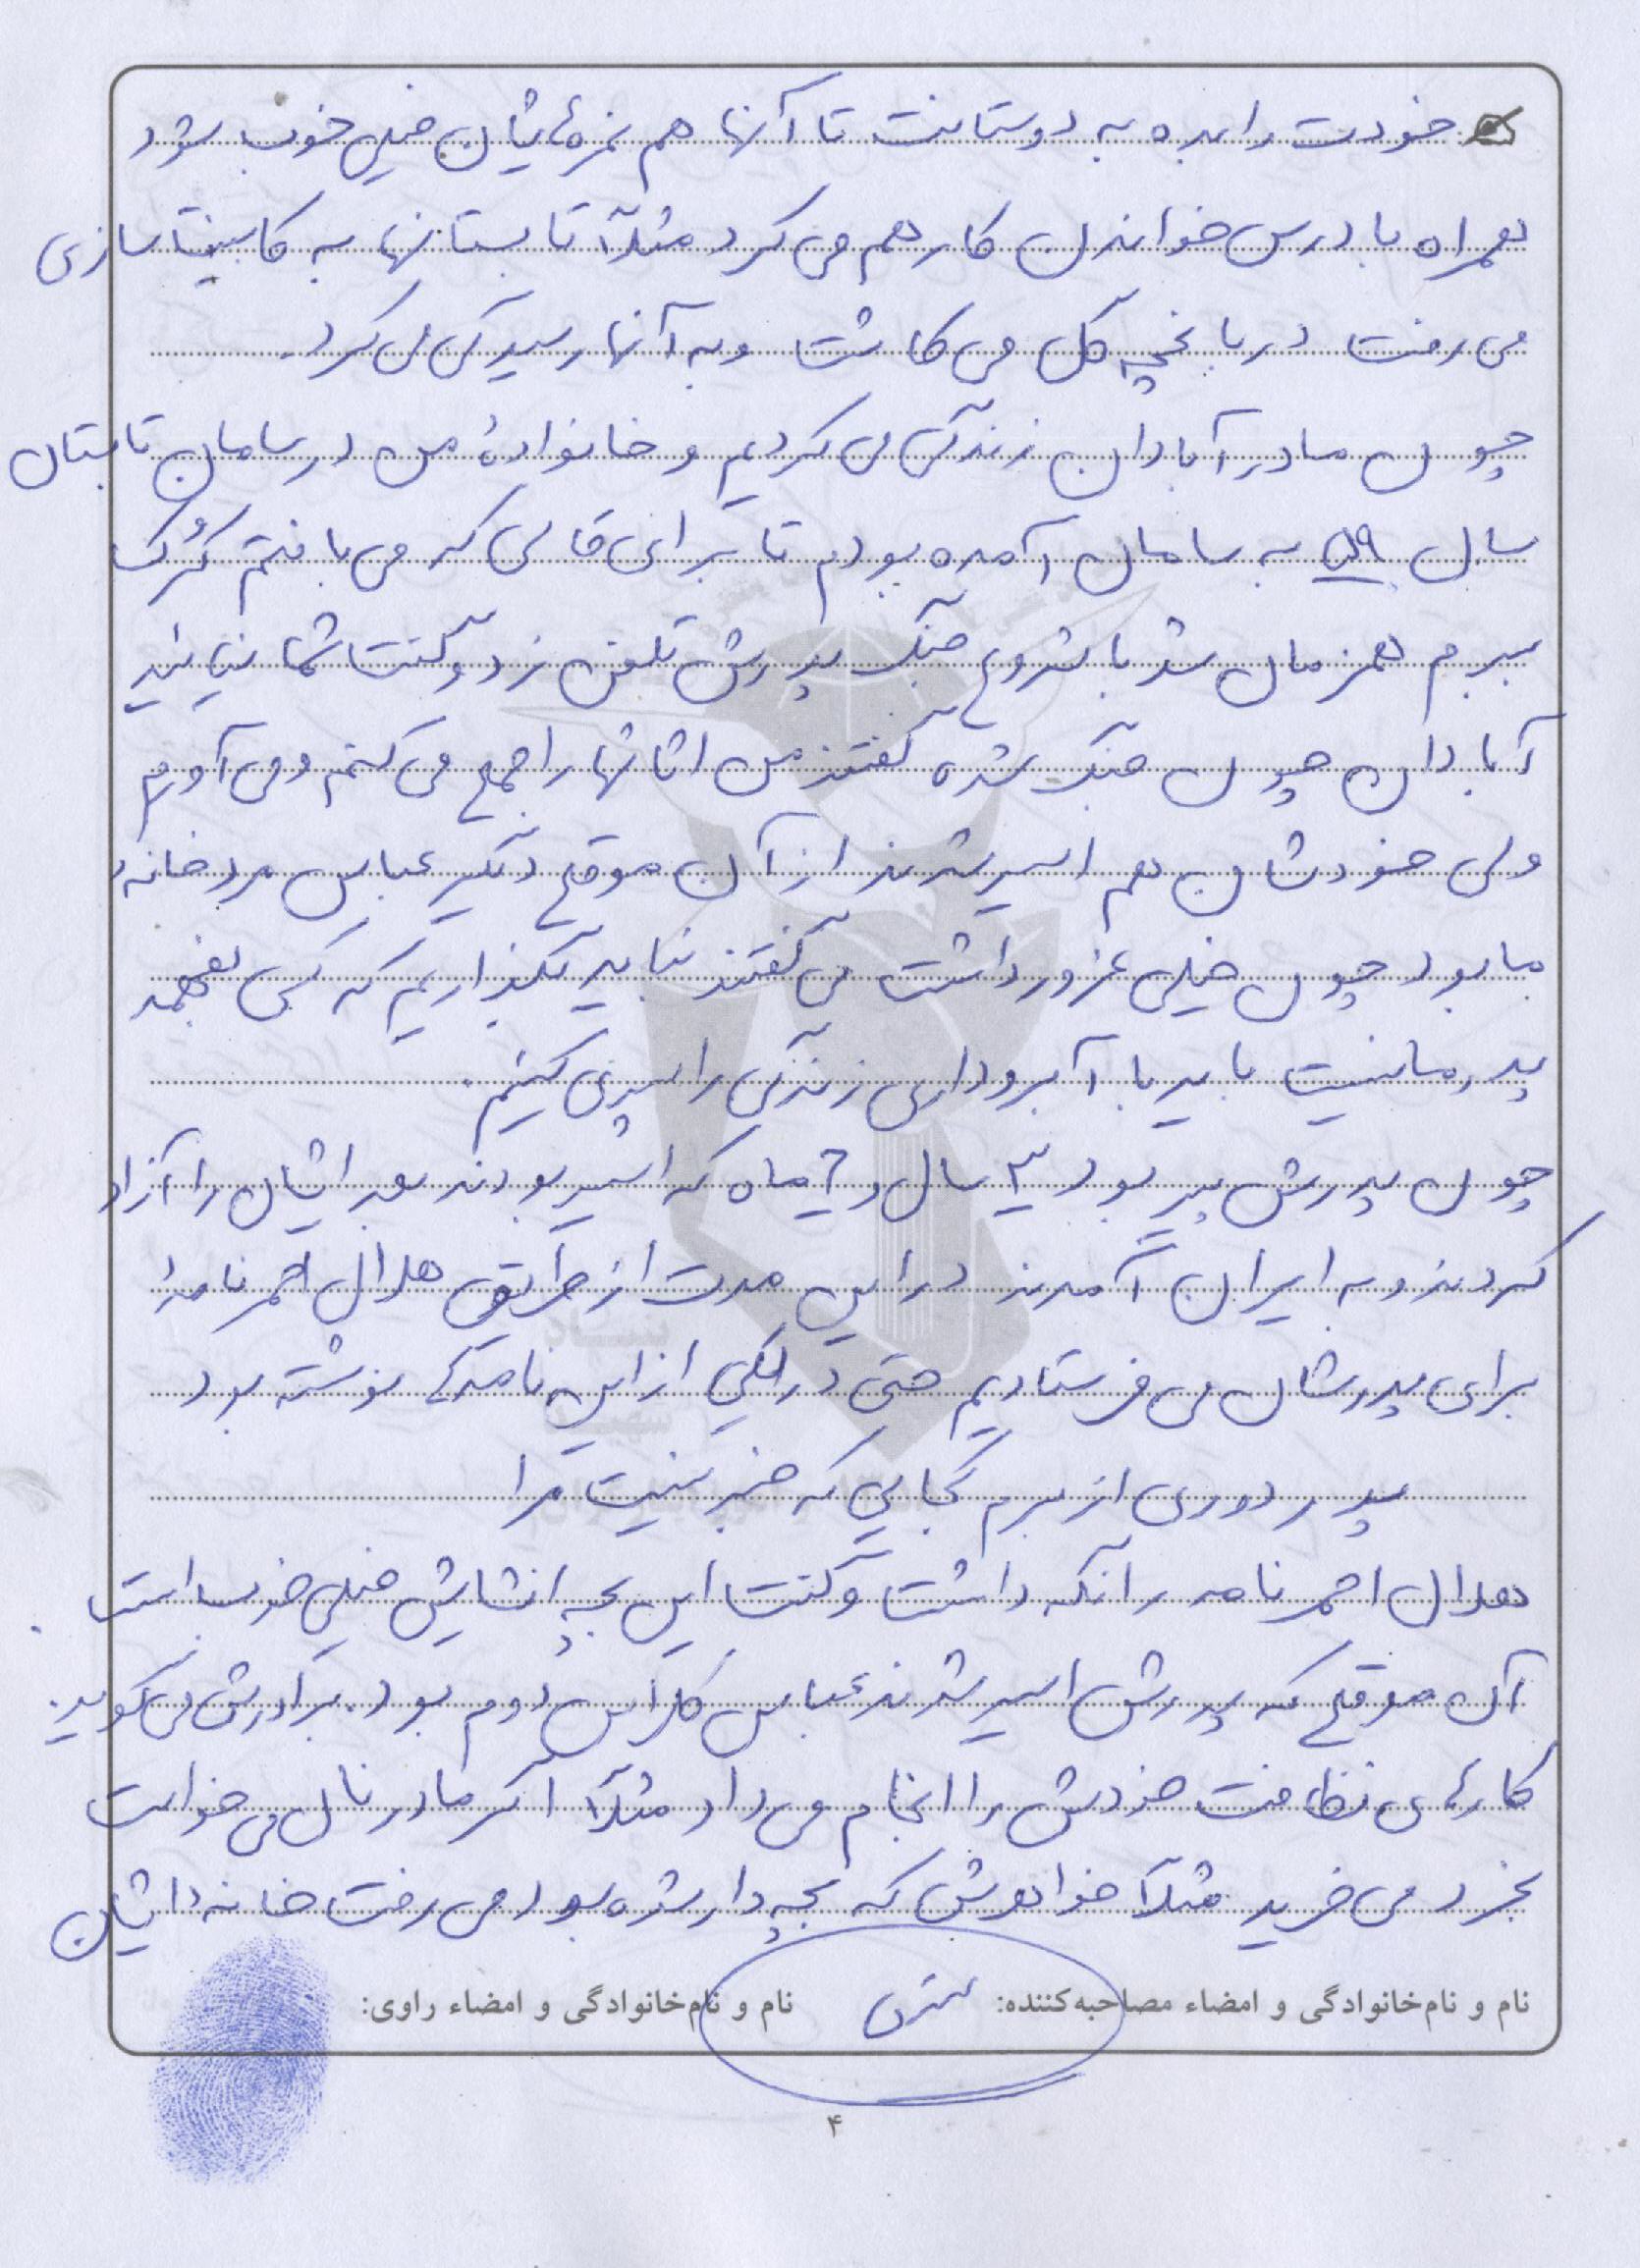 خودت را بده به دوستانت تا آنها هم نمره‌هایشان خیلی خوب شود
همراه با درس خواندن کار هم می کرد مثلاً تابستانها به کابینت سازی
می رفت در باغچه گل می کاشت و به آنها رسیدگی می کرد.
چون ما در آبادان زندگی می کردیم و خانوادهٔ من در سامان تابستان
سال ۵۹ به سامان آمده بودم تا برای قالی که می بافتم کُرک
ببرم همزمان شد با شروع جنگ پدرش تلفن زد و گفت شما نیائید
آبادان چون جنگ شده گفتند من اثاثها را جمع می کنم و می آورم
ولی خودشان هم اسیر شدند از آن موقع دیگر عباس مرد خانهٔ
ما بود چون خیلی غرور داشت می گفتند نباید بگذاریم که کسی بفهمد
پدر ما نیست باید با آبروداری زندگی را سپری کنیم.
چون پدرش پیر بود ۳ سال و ۶ ماه که اسیر بودند بعد ایشان را آزاد
کردند و به ایران آمدند در این مدت از طریق هلال احمر نامه
برای پدرشان می فرستادیم حتی در یکی از این نامه‌ها نوشته بود
پدر دوری از برم کجایی که خبر نیست مرا
هلال احمر نامه را نگه داشت و گفت این بچه انشایش خیلی خوب است.
آن موقع که پدرش اسیر شدند عباس کلاس دوم بود. برادرش می گوید:
کارهای نظافت خودش را انجام می داد مثلاً اگر مادر نان می خواست
بخرد می خرید مثلاً خواهرش که بچه دار شده بود می رفت خانه داشیان
نام و نام‌خانوادگی و امضاء مصاحبه‌کننده: نام و نام‌خانوادگی و امضاء راوی:
۴